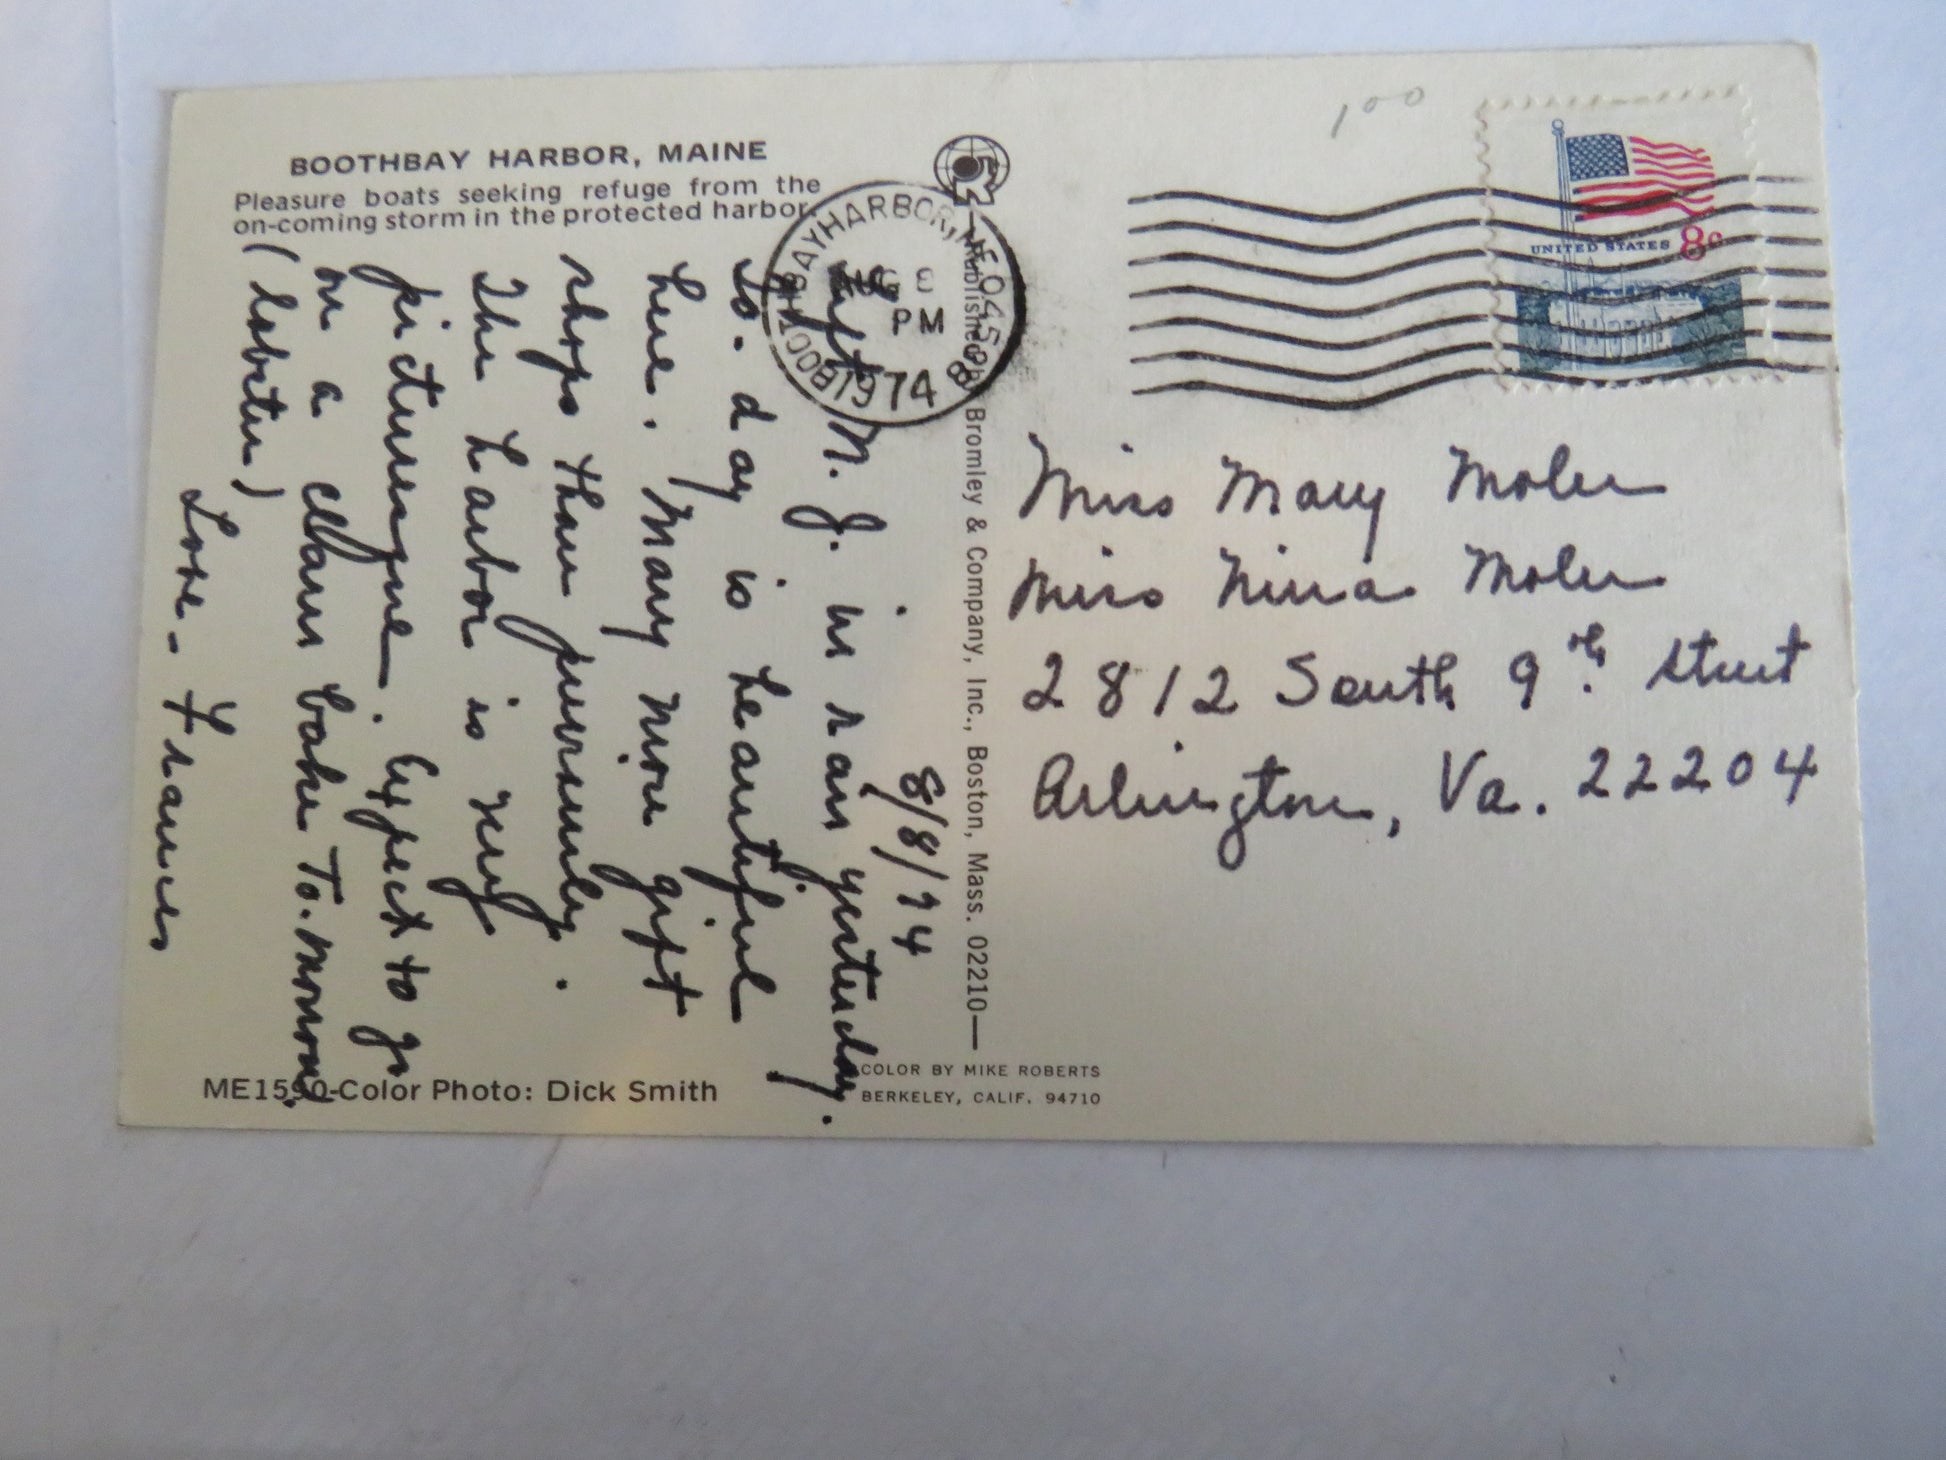 100
BOOTHBAY HARBOR, MAINE
Pleasure boats seeking refuge from the
on-coming storm in the protected harbor.
BOOTHBAY HARBOR, ME 04538
AUG 8
PM
1974
UNITED STATES 8c
8/8/74
Left N. J. in rain yesterday.
To.day is beautiful
here. Many more gift
shops than previously.
The harbor is very
picturesque. Expect to go
on a clam bake to.morrow.
(lobster)
Love - Frances
Published by Bromley & Company, Inc., Boston, Mass. 02210
Miss Mary Moler
Miss Nina Moler
2812 South 9th Street
Arlington, Va. 22204
ME1590-Color Photo: Dick Smith
COLOR BY MIKE ROBERTS
BERKELEY, CALIF. 94710